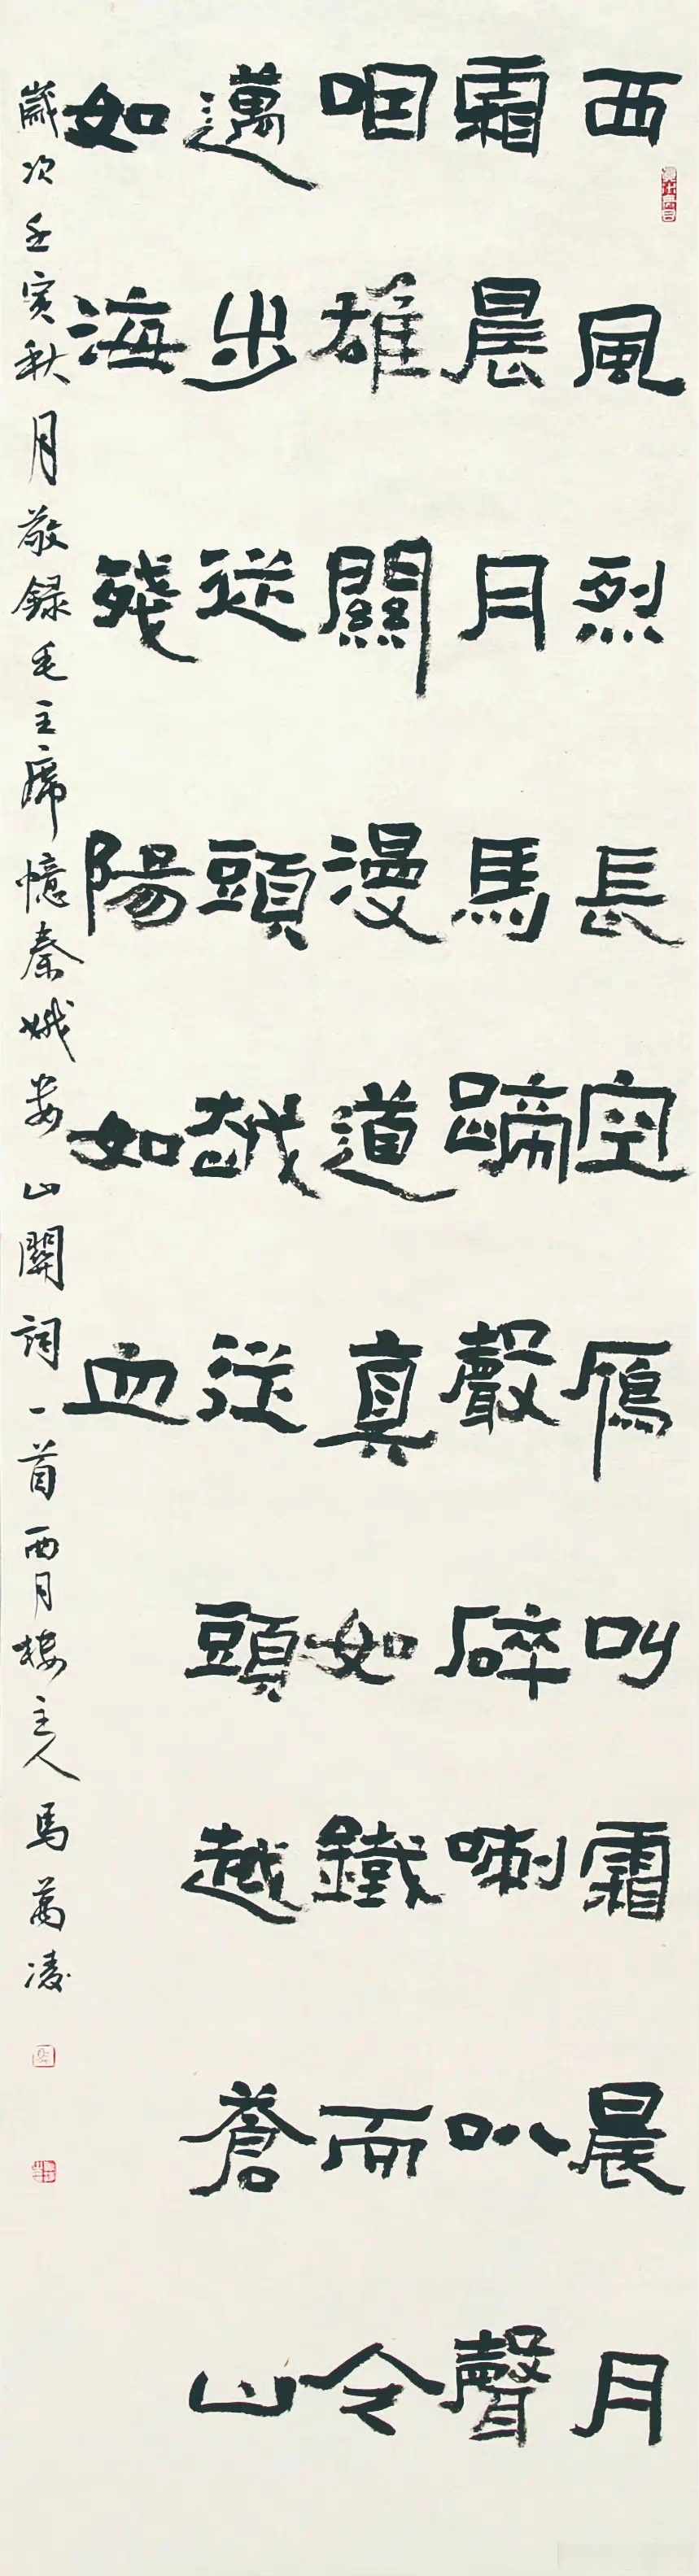 西風烈長空鴈叫霜晨月
霜晨月馬蹄聲碎喇叭聲
咽雄關漫道真如鐵而今
邁步從頭越從頭越蒼山
如海殘陽如血
歲次壬寅秋月敬録毛主席憶秦娥婁山關詞一首西月樓主人馬萬凌